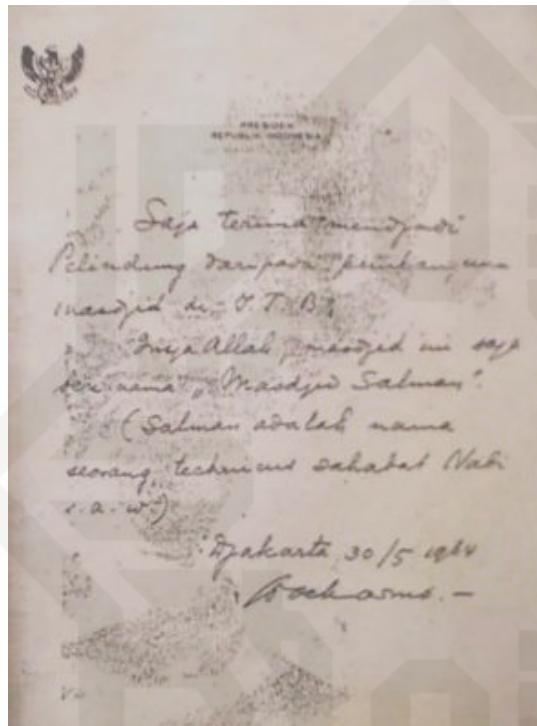 PRESIDEN
REPUBLIK INDONESIA
Saja terima mendjadi
Pelindung daripada pembangunan
masdjid di I.T.B.
Insja Allah, masdjid ini saja
beri nama „Masdjid Salman”.
(Salman adalah nama
seorang technicus sahabat Nabi
s.a.w.)
Djakarta, 30/5 1964
Soekarno.—